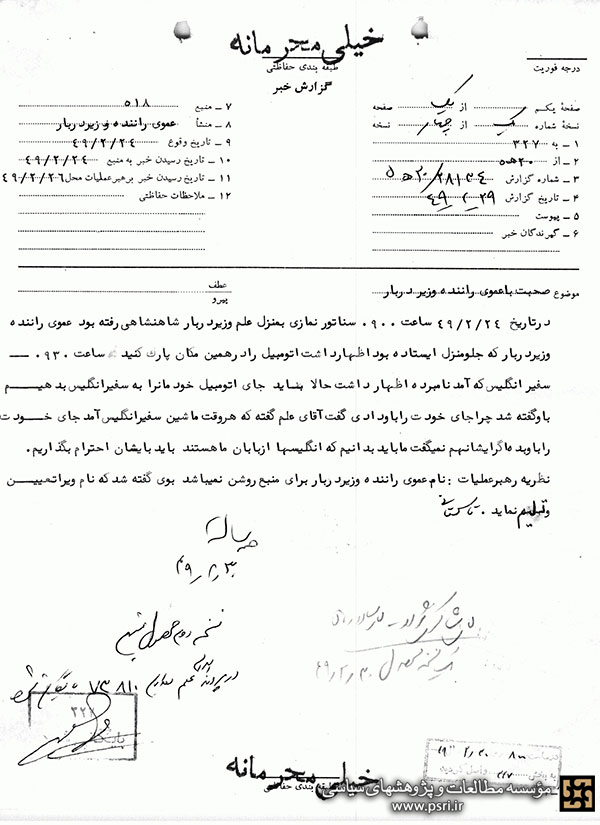 خیلی محرمانه
طبقه بندی حفاظتی
گزارش خبر
درجه فوریت
صفحه یکم از یک صفحه
نسخه شماره یک از چهار نسخه
۱ ـ به ۳۲۷
۲ ـ از ۲۰ ه ۵
۳ ـ شماره گزارش
۴ ـ تاریخ گزارش ۴۹/۲/۲۹
۵ ـ پیوست
۶ ـ گیرندگان خبر
۷ ـ منبع ۵۱۸
۸ ـ منشأ عموی راننده وزیر دربار
۹ ـ تاریخ وقوع ۴۹/۲/۲۴
۱۰ ـ تاریخ رسیدن خبر به منبع ۴۹/۲/۲۴
۱۱ ـ تاریخ رسیدن خبر برهبرعملیات محل ۴۹/۲/۲۶
۱۲ ـ ملاحظات حفاظتی
موضوع صحبت با عموی راننده وزیر دربار
عطف
پیرو
در تاریخ ۴۹/۲/۲۴ ساعت ۰۹۰۰ سناتور نمازی بمنزل علم وزیر دربار شاهنشاهی رفته بود عموی راننده
وزیر دربار که جلو منزل ایستاده بود اظهار داشت اتومبیل را در همین مکان پارك کنید ساعت ۰۹۳۰ ـــ
سفیر انگلیس که آمد نامبرده اظهار داشت حالا بیاید جای اتومبیل خودمانرا به سفیر انگلیس بدهیم
باو گفته شد چرا جای خودت را باو دادی گفت آقای علم گفته که هر وقت ماشین سفیر انگلیس آمد جای خودت
را باو بده اگر ایشان هم نمیگفت ما باید بدانیم که انگلیسها اربابان ما هستند باید بایشان احترام بگذاریم.
نظریه رهبر عملیات : نام عموی راننده وزیر دربار برای منبع روشن نمیباشد بوی گفته شد که نام ویرا تعیین
و تسلیم نماید.
نسخه دوم
در پرونده علم ۷۳۸۱۰ بایگانی شود
۳۲۷
خیلی محرمانه
طبقه بندی حفاظتی
مؤسسه مطالعات و پژوهشهای سیاسی
www.psri.ir